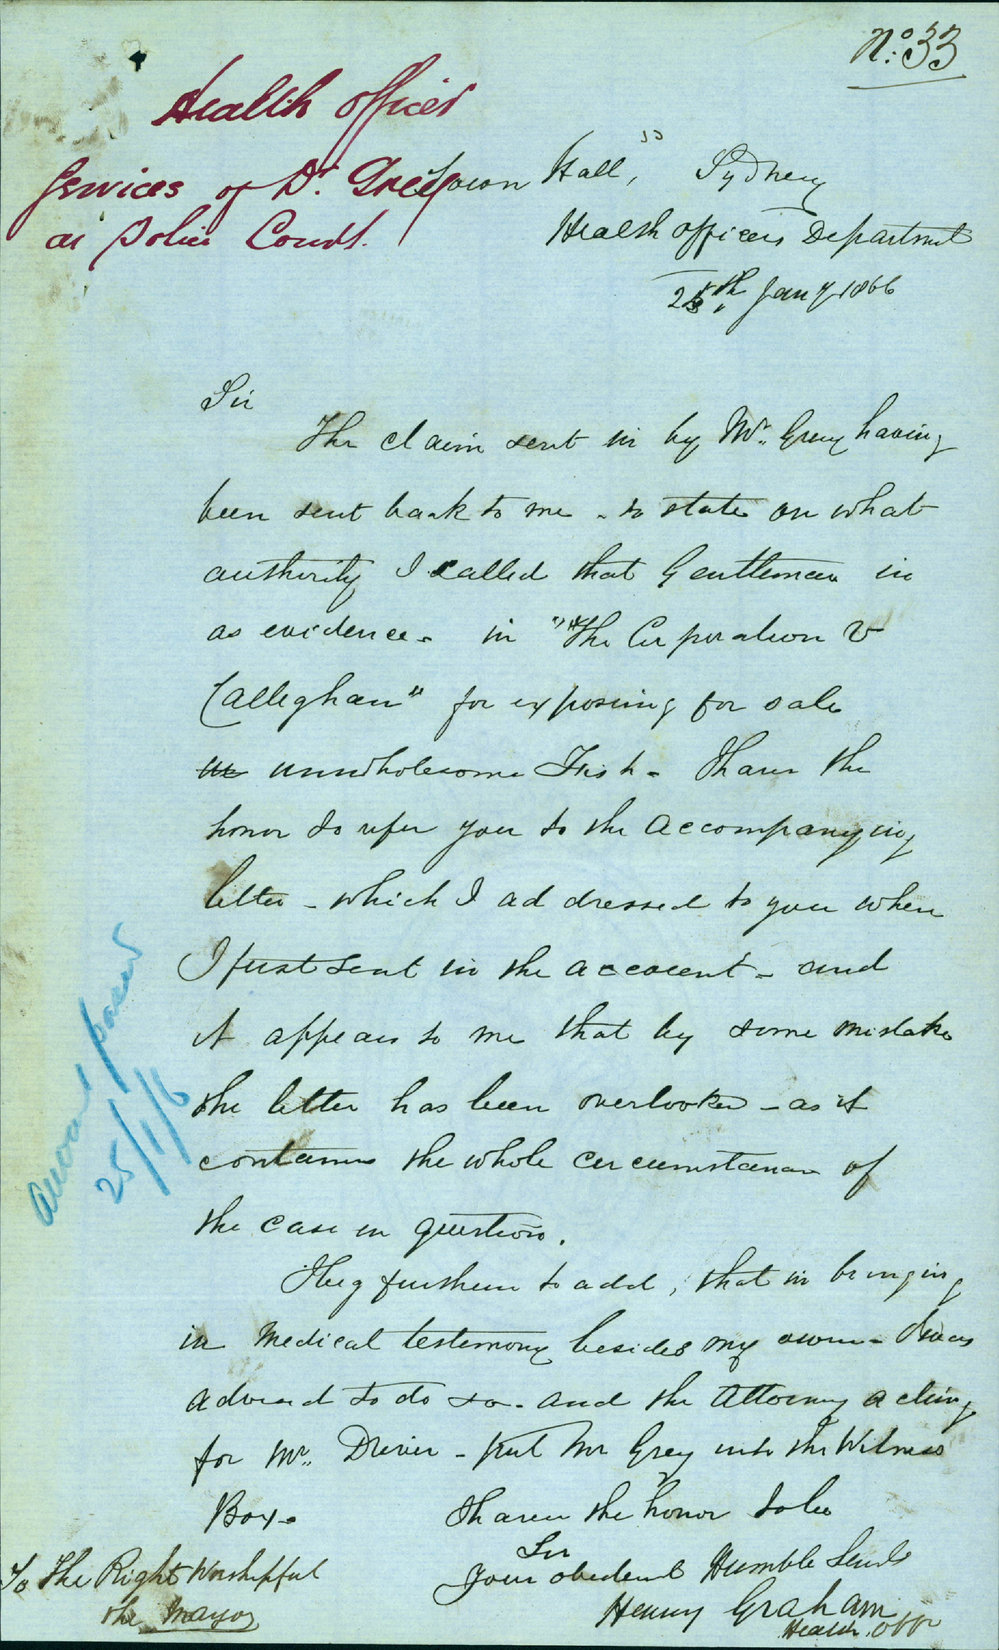 No. 33
Health Officer
Services of Dr. Grey
at Police Court.
Town Hall, Sydney
Health Officers Department
25th Jany 1866
Sir
The claim sent in by Mr. Grey having
been sent back to me - to state on what
authority I called that Gentleman in
as evidence - in "The Corporation V
Calleghan" for exposing for sale
unwholesome Fish - I have the
honor to refer you to the accompanying
letter - which I addressed to you when
I first sent in the account - and
it appears to me that by some mistake
the letter has been overlooked - as it
contains the whole circumstances of
the case in question.
I beg further to add, that in bringing
in Medical testimony besides my own - I was
advised to do so - and the Attorney acting
for Mr. Driver - put Mr Grey into the Witness
Box -
I have the honor to be
Sir
Your obedient Humble Servt
Henry Graham
Health Offr
To The Right Worshipful
the Mayor
25/1/6